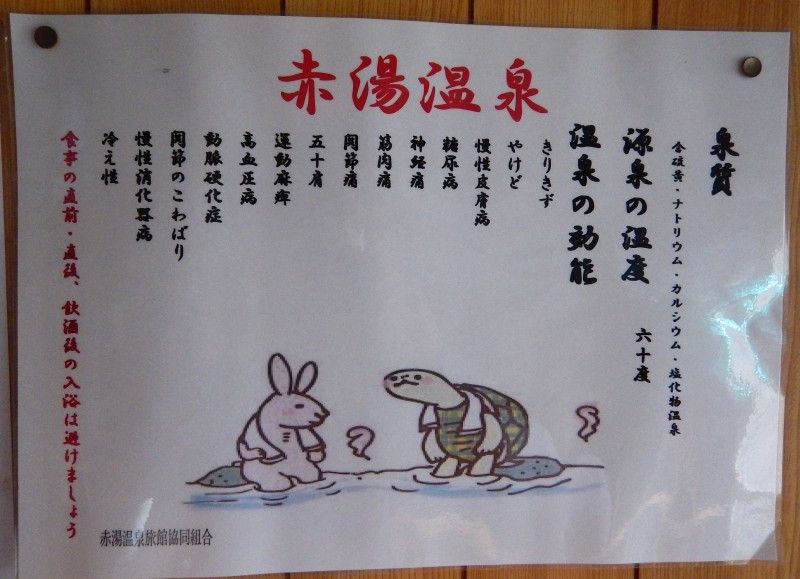 赤湯温泉
泉質
含硫黄・ナトリウム・カルシウム・塩化物温泉
源泉の温度 六十度
温泉の効能
きりきず
やけど
慢性皮膚病
糖尿病
神経痛
筋肉痛
関節痛
五十肩
運動麻痺
高血圧病
動脈硬化症
関節のこわばり
慢性消化器病
冷え性
食事の直前・直後、飲酒後の入浴は避けましょう
赤湯温泉旅館協同組合